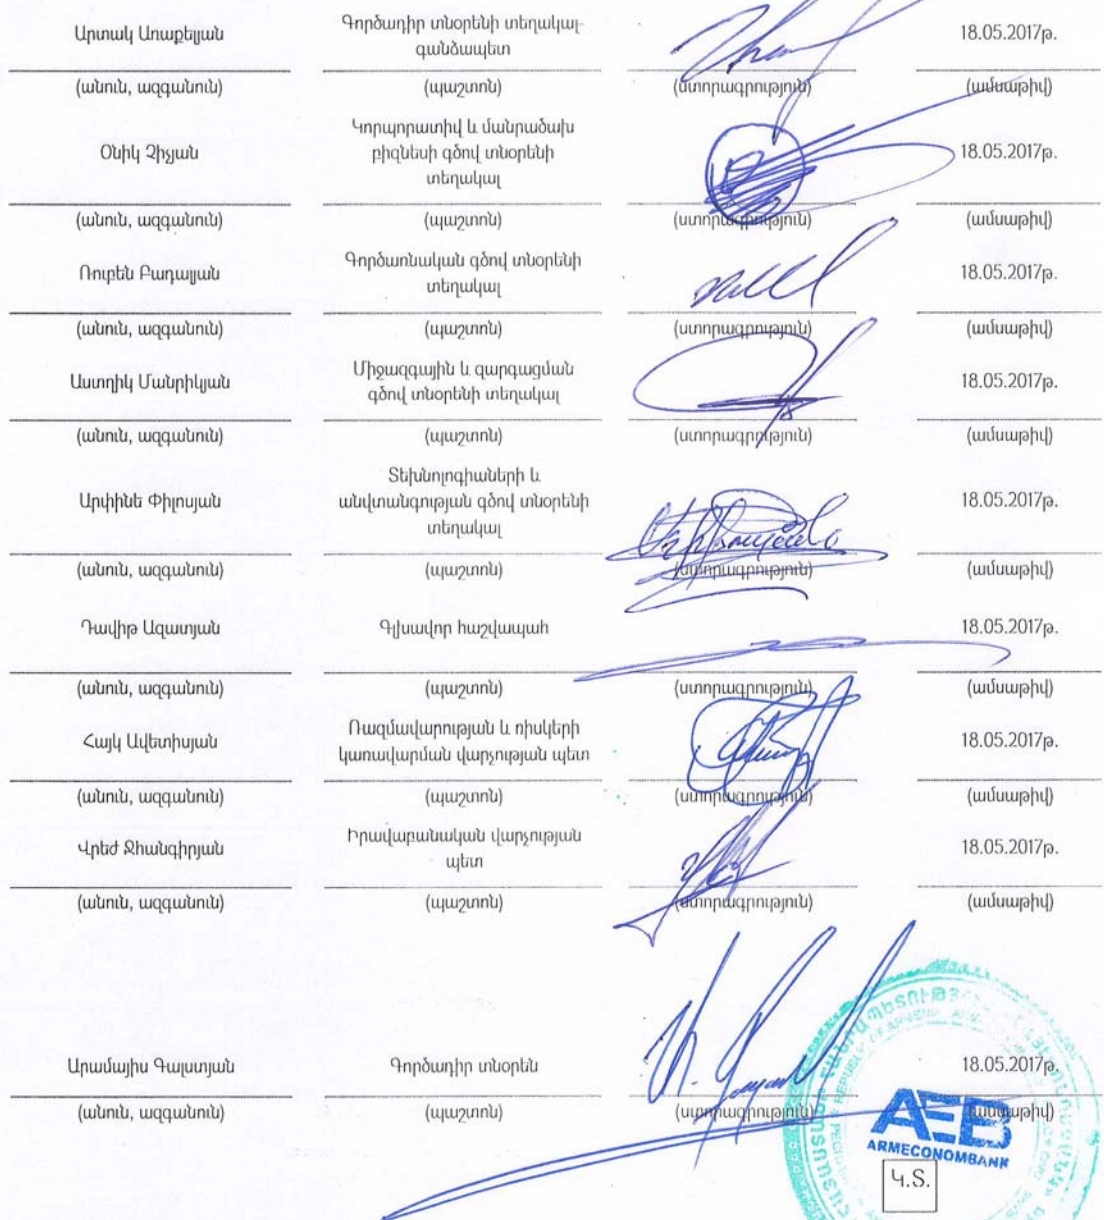 Արտակ Առաքելյան Գործադիր տնօրենի տեղակալ- 18.05.2017թ.
գանձապետ
(անուն, ազգանուն) (պաշտոն) (ստորագրություն) (ամսաթիվ)
Կորպորատիվ և մանրածախ
Օնիկ Չիչյան բիզնեսի գծով տնօրենի 18.05.2017թ.
տեղակալ
(անուն, ազգանուն) (պաշտոն) (ստորագրություն) (ամսաթիվ)
Ռուբեն Բադալյան Գործառնական գծով տնօրենի 18.05.2017թ.
տեղակալ
(անուն, ազգանուն) (պաշտոն) (ստորագրություն) (ամսաթիվ)
Աստղիկ Մանրիկյան Միջազգային և զարգացման 18.05.2017թ.
գծով տնօրենի տեղակալ
(անուն, ազգանուն) (պաշտոն) (ստորագրություն) (ամսաթիվ)
Տեխնոլոգիաների և
Արփինե Փիլոսյան անվտանգության գծով տնօրենի 18.05.2017թ.
տեղակալ
(անուն, ազգանուն) (պաշտոն) (ստորագրություն) (ամսաթիվ)
Դավիթ Ազատյան Գլխավոր հաշվապահ 18.05.2017թ.
(անուն, ազգանուն) (պաշտոն) (ստորագրություն) (ամսաթիվ)
Հայկ Ավետիսյան Ռազմավարության և ռիսկերի 18.05.2017թ.
կառավարման վարչության պետ
(անուն, ազգանուն) (պաշտոն) (ստորագրություն) (ամսաթիվ)
Վրեժ Ջհանգիրյան Իրավաբանական վարչության 18.05.2017թ.
պետ
(անուն, ազգանուն) (պաշտոն) (ստորագրություն) (ամսաթիվ)
Արամայիս Գալստյան Գործադիր տնօրեն 18.05.2017թ.
(անուն, ազգանուն) (պաշտոն) (ստորագրություն) (ամսաթիվ)
AEB
ARMECONOMBANK
Կ.Տ.